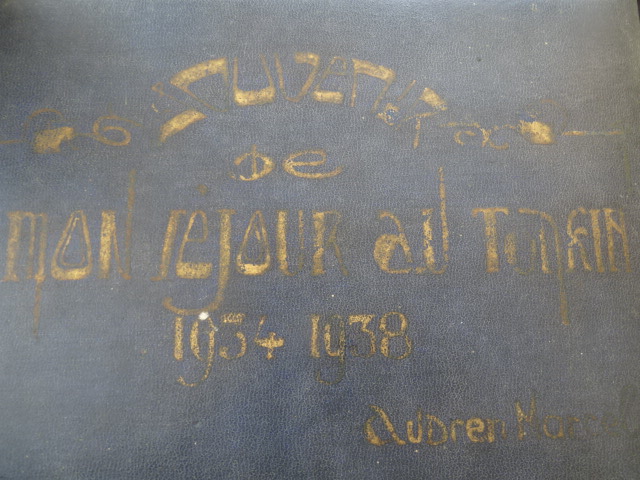 SOUVENIR
DE
MON SÉJOUR AU TONKIN
1934 1938
Audren